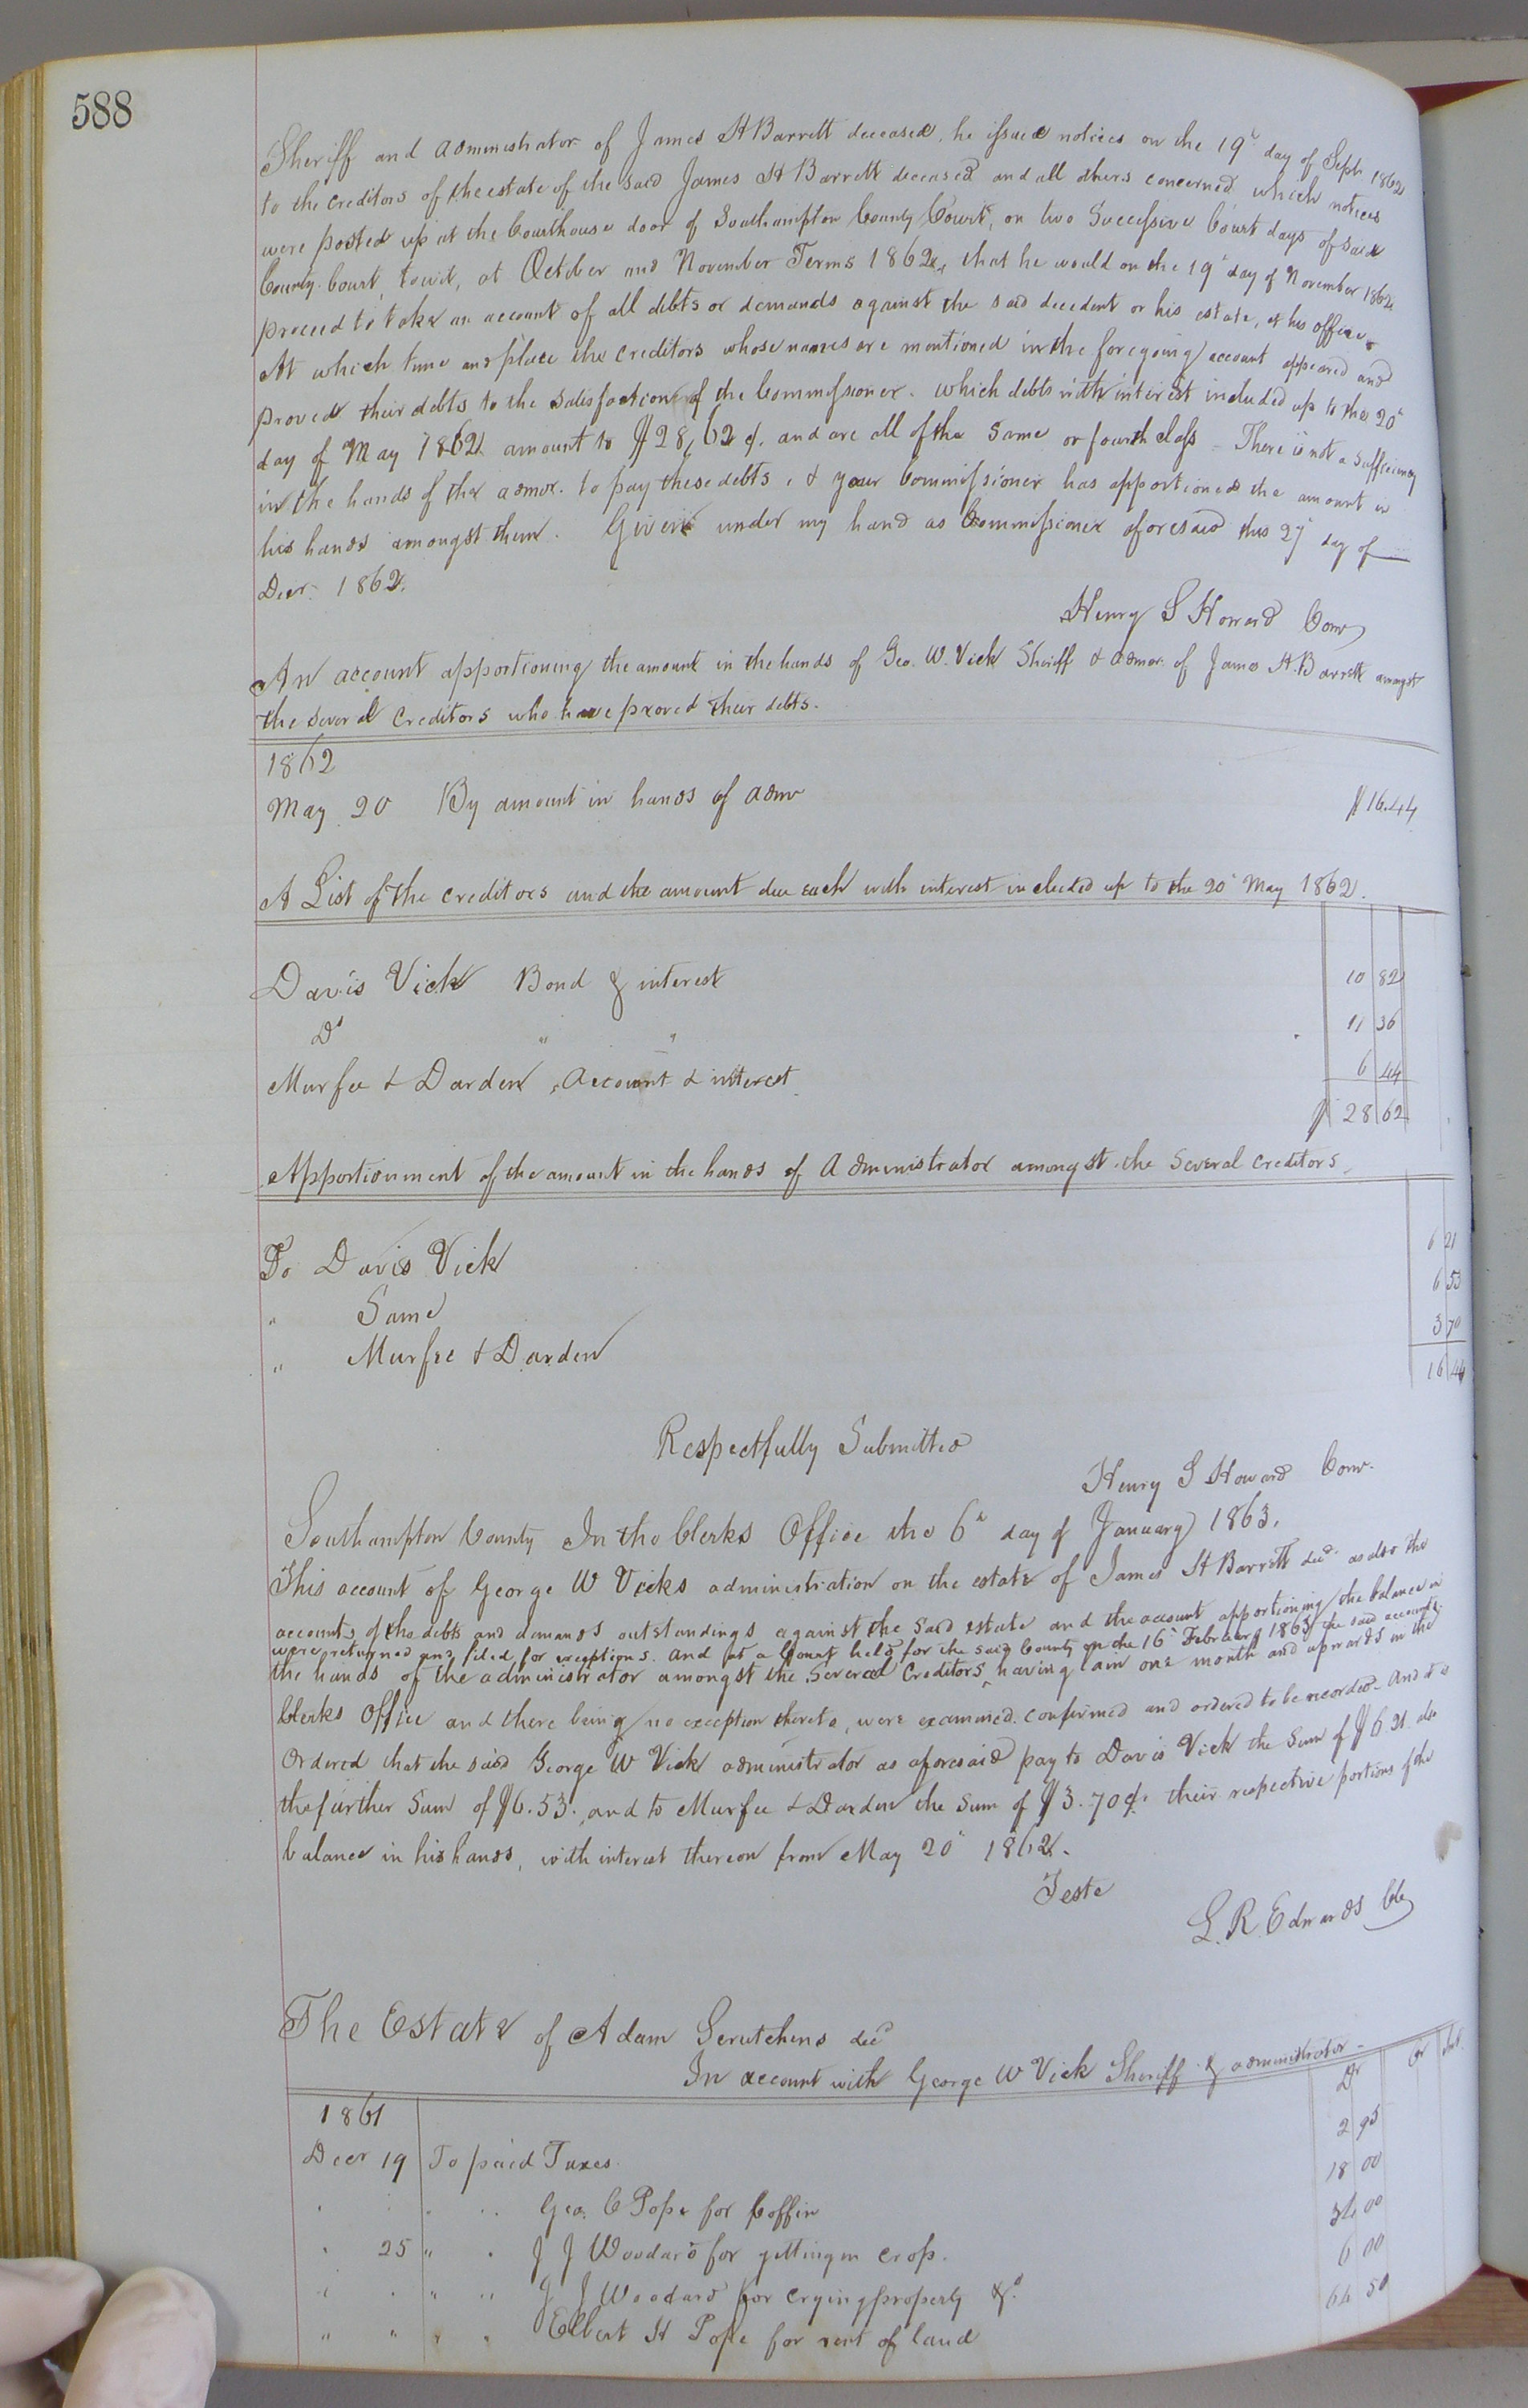 588
Sheriff and administrator of James H Barrett deceased, he issued notices on the 19" day of Sept 1862
to the creditors of the estate of the said James H Barrett deceased and all others concerned which notices
were posted up at the Courthouse door of Southampton County Court, on two Successive Court days of said
County Court, towit, at October and November Terms 1862, that he would on the 19" day of November 1862
proceed to take an account of all debts or demands against the said decedent or his estate, at his office.
At which time and place the creditors whose names are mentioned in the foregoing account appeared and
proved their debts to the satisfaction of the Commissioner. which debts with interest included up to the 20"
day of May 1862 amount to $28,62 ¢. and are all of the same or fourth class - There is not a sufficiency
in the hands of the admor. to pay these debts, & your Commissioner has apportioned the amount in
his hands amongst them. Given under my hand as Commissioner aforesaid this 27" day of
Decr. 1862.
Henry S Howard Comr
An account apportioning the amount in the hands of Geo. W. Vick Sheriff & admor. of James H. Barrett amongst
the several Creditors who have proved their debts.
1862
May 20 By amount in hands of admr $16.44
A List of the creditors and the amount due each with interest included up to the 20" May 1862.
Davis Vick Bond & interest 10 82
Do " " 11 36
Murfee & Darden, Account & interest 6 44
$ 28 62
Apportionment of the amount in the hands of Administrator amongst the several creditors
To Davis Vick 6 21
" Same 6 53
" Murfee & Darden 3 70
16 44
Respectfully Submitted
Henry S Howard Comr.
Southampton County In the Clerks Office the 6" day of January 1863.
This account of George W Vicks administration on the estate of James H Barrett decd. as also the
accounts of the debts and demands outstandings against the said estate and the account apportioning the balance in
were returned and filed for exceptions. and at a Court held for the said County on the 16" February 1863 the said accounts
the hands of the administrator amongst the several Creditors, ‸ having lain one month and upwards in the
Clerks Office and there being no exception thereto, were examined. confirmed and ordered to be recorded. And it is
Ordered that the said George W Vick administrator as aforesaid pay to Davis Vick the Sum of $6.21. also
the further Sum of $6.53. and to Murfee & Darden the Sum of $3.70¢. their respective portions of the
balance in his hands, with interest thereon from May 20" 1862.
Teste
L. R. Edwards Clk
The Estate of Adam Scrutchens decd
In account with George W Vick Sheriff & administrator - Dr Cr
1861
Decr 19 To paid Taxes. 2 95
" " " " Geo. C Pope for Coffin 18 00
" 25 " " J J Woodard for getting in crop. 34 00
" " " " J J Woodard for crying property &c. 6 00
" " " " Elbert H Pope for rent of land 64 50